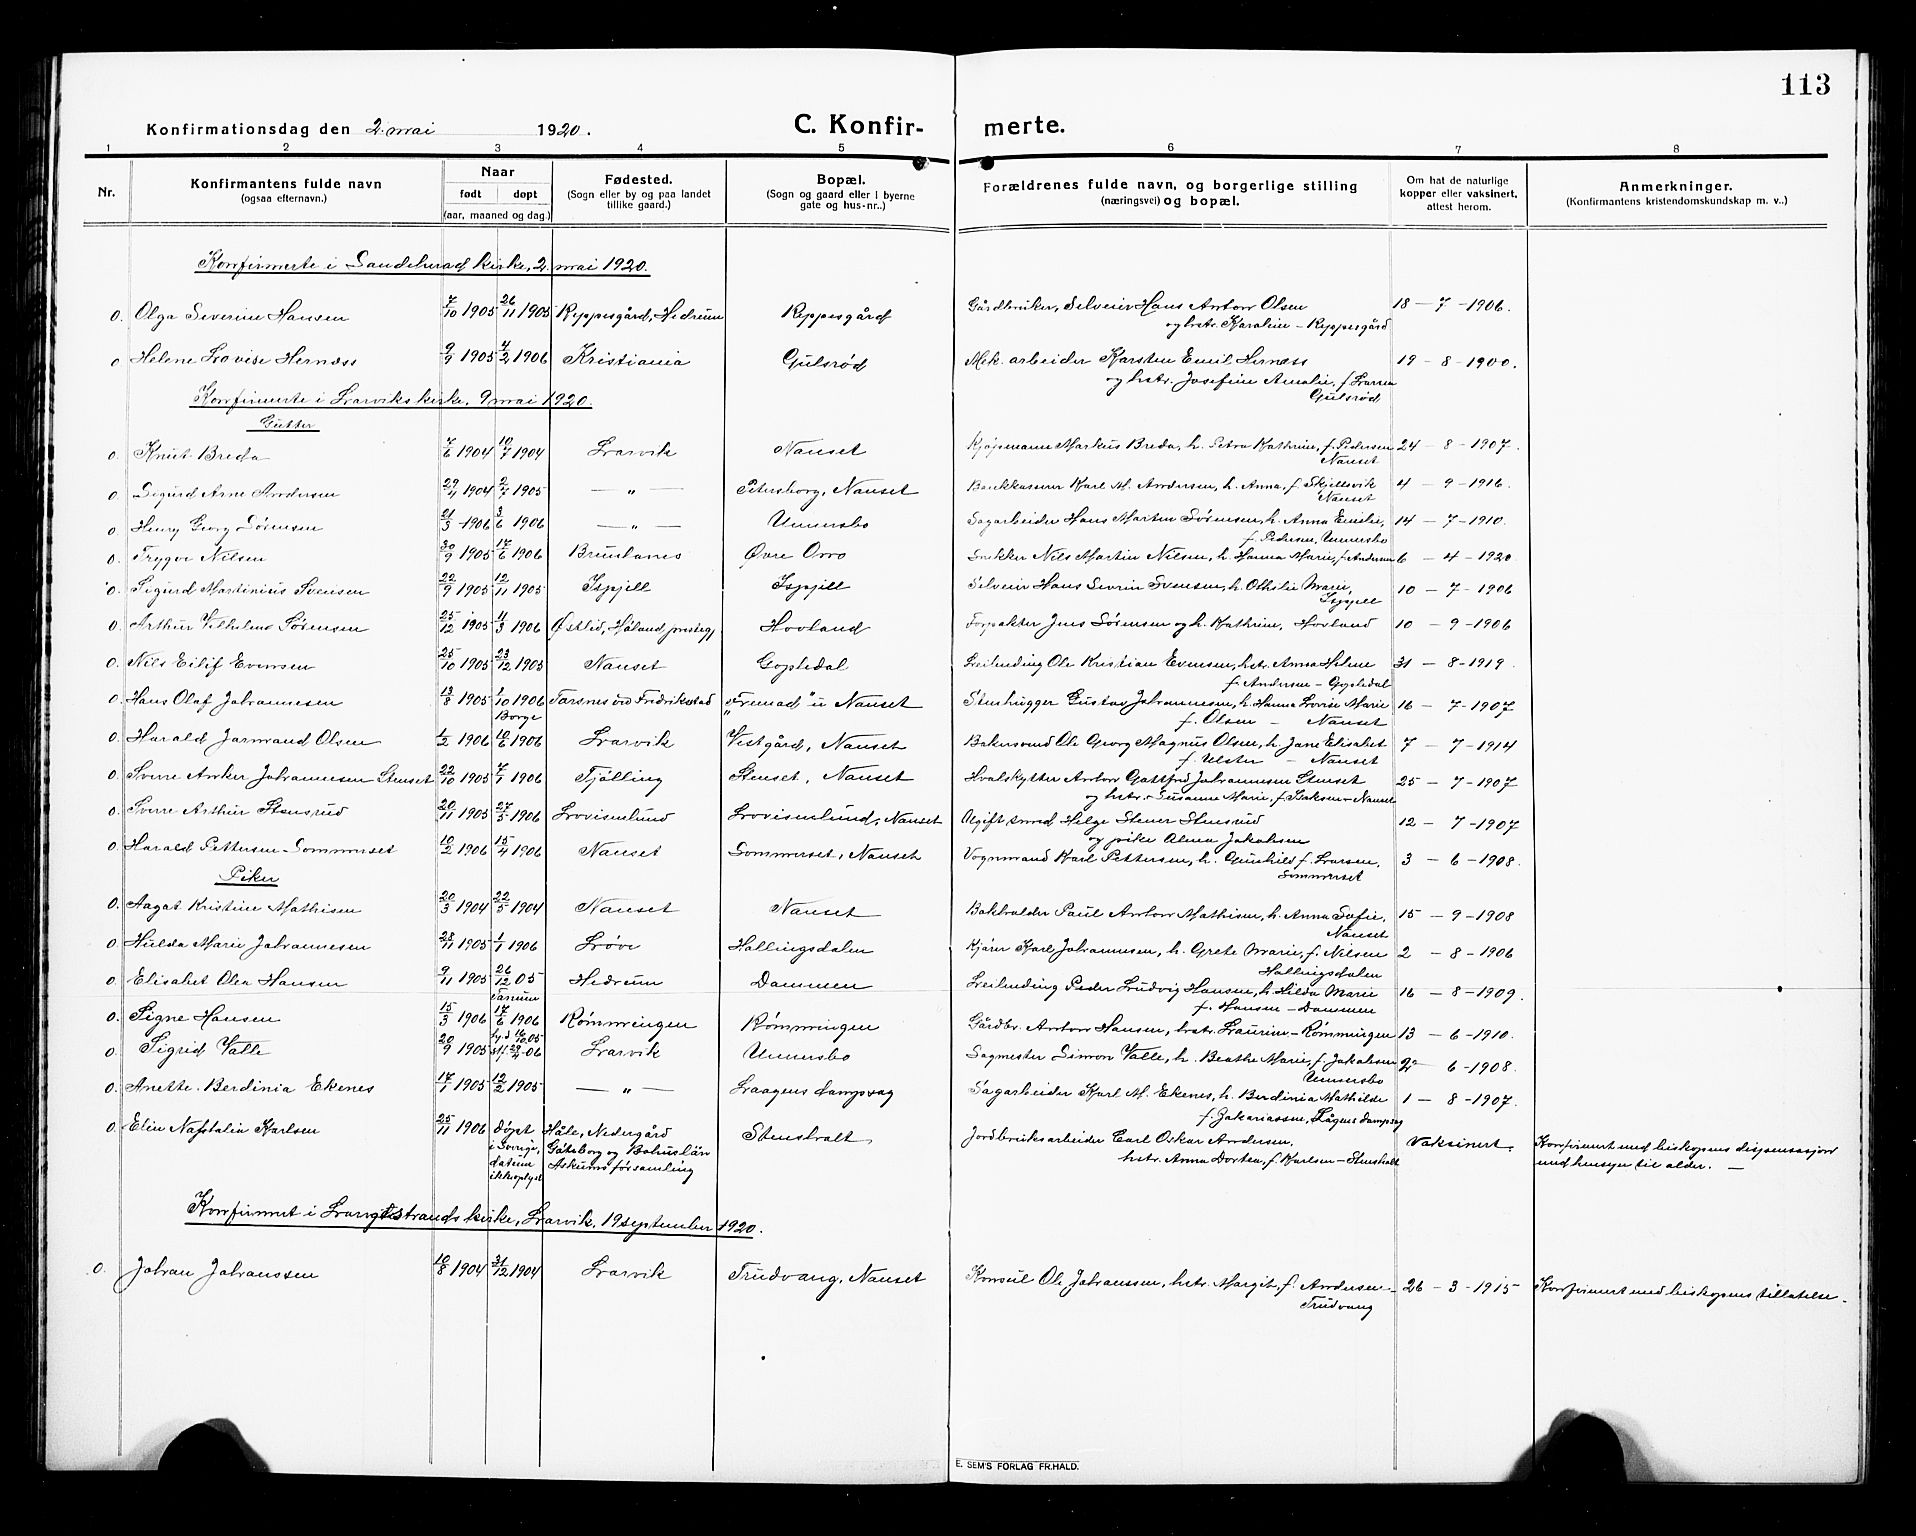 113
Konfirmationsdag den 2. mai 1920.
C. Konfir- merte.
1 2 3 4 5 6 7 8
Nr.
Konfirmantens fulde navn
(ogsaa efternavn.)
Naar
født døpt
(aar, maaned og dag.)
Fødested.
(Sogn eller by og paa landet
tillike gaard.)
Bopæl.
(Sogn og gaard eller i byerne
gate og hus-nr..)
Forældrenes fulde navn, og borgerlige stilling
(næringsvei) og bopæl.
Om hat de naturlige
kopper eller vaksinert.
attest herom.
Anmerkninger.
(Konfirmantens kristendomskundskap m. v..)
Konfirmerte i Sandeherad kirke, 2. mai 1920.
0. Olga Severine Hansen 7/10 1905 26/11 1905 Reppesgård, Hedrum Reppesgård Gårdbruker, Selveier Hans Anton Olsen 18 – 7 – 1906.
og hstr. Karoline – Reppesgård
0 Helene Lovise Hernæss 9/9 1905 4/2 1906 Kristiania Gulsrød Mek. arbeider Karsten Emil Hernæss 19 – 8 – 1900.
og hstr. Josefine Amalie, f. Larsen
Gulsrød
Konfirmerte i Larviks kirke, 9 mai 1920.
Gutter
0. Knut Breda 7/6 1904 10/7 1904 Larvik Nanset Kjøpmann Markus Breda, h. Petra Kathrine, f. Pedersen 24 – 8 – 1907.
Nanset
0. Sigurd Arne Andersen 29/11 1904 2/7 1905 — " — Petersborg, Nanset Bankkasserer Karl M. Andersen, h. Anna, f. Skjellsvik 4 – 9 – 1916.
Nanset
0. Henry Georg Sørensen 21/3 1906 3/6 1906 — " — Unnersbo Sagarbeider Hans Martin Sørensen, h. Anna Emilie, 14 – 7 – 1910.
f. Pedersen, Unnersbo
0. Trygve Nilsen 30/9 1905 17/6 1906 Brunlanes Øvre Omo Snekker Nils Martin Nilsen, h. Hanna Marie, f. Andersen 6 – 4 – 1920
0. Sigurd Martinius Svensen 22/9 1905 12/11 1905 Ispjell Ispjell Selveier Hans Severin Svensen, h. Othilie Marie, 10 – 7 – 1906
Ispjell
0. Arthur Vilhelm Sørensen 25/12 1905 11/3 1906 Østlid, Høland prestegj. Hovland Forpakter Jens Sørensen og h. Kathrine, Hovland 10 – 9 – 1906
0. Nils Eilif Evensen 25/10 1905 23/12 1905 Nanset Gopledal Leilending Ole Kristian Evensen, hstr. Anna Helene 31 – 8 – 1919.
f. Andersen – Gopledal
0. Hans Olaf Johannesen 13/8 1905 1/10 1906 Torsnes ved Fredrikstad "Fremad" Nanset Stenhugger Gustav Johannesen, h. Hanna Lovise Marie 16 – 7 – 1907
Borge f. Olsen – Nanset
0. Harald Jarmand Olsen 1/2 1906 10/6 1906 Larvik Vestgård, Nanset Bakersvend Ole Georg Magnus Olsen, h. Jane Elisabet 7 – 7 – 1914
f. Ulster – Nanset
0. Sverre Anker Johannesen Stenset 22/10 1905 7/1 1906 Tjølling Stenset, Nanset Hvalskytter Anton Gottfred Johannesen Stenset 25 – 7 – 1907
og hstr. Susanne Marie, f. Isaksen – Nanset
0. Sverre Arthur Stensrud 20/11 1905 27/5 1906 Lovisenlund Lovisenlund, Nanset Ugift mand Helge Stener Stensrud 12 – 7 – 1907
og pike Alma Jakobsen
0. Harald Pettersen – Sommerset 10/2 1906 15/4 1906 Nanset Sommerset, Nanset Vognmand Karl Pettersen, h. Gunhild f. Larsen, 3 – 6 – 1908.
Sommerset
Piker
0. Aagot Kristine Mathisen 20/3 1904 22/5 1904 Nanset Nanset Bokholder Paul Anton Mathisen, h. Anna Sofie, 15 – 9 – 1908
Nanset
0. Hulda Marie Johannesen 28/11 1905 1/1 1906 Løve Hallingsdalen Kjører Karl Johannesen, h. Grete Marie, f. Nilsen 2 – 8 – 1906
Hallingsdalen
0. Elisabet Olea Hansen 9/11 1905 26/12 05 Hedrum Dammen Leilending Peder Ludvig Hansen, h. Hilda Marie 16 – 8 – 1909.
Tanum f. Hansen – Dammen
0. Signe Hansen 15/3 1906 17/6 1906 Rømmingen Rømmingen Gårdbr. Anton Hansen, hstr. Laurine – Rømmingen 13 – 6 – 1910.
0. Sigrid Valle 20/9 1905 hj.d 16/10 05 Larvik Unnersbo Sagmester Simon Valle, h. Beathe Marie, f. Jakobsen 22 – 6 – 1908.
st/f. 29/4 06 Unnersbo
0. Anette Berdinia Ekenes 17/1 1905 12/2 1905 — " — Laagens dampsag Sagarbeider Karl M. Ekenes, h. Berdinia Mathilde 1 – 8 – 1907.
f. Jakariassen, Lågens dampsag
0. Elin Nafstalia Karlsen 25/11 1906 døpt Håle, Nedergård Stensholt Jordbruksarbeider Carl Oskar Andersen, Vaksinert. Konfirmert med biskopens dispensasjon
i Sverige, Gøteborg og Bohuslän hstr. Anna Dortea, f. Karlsen – Stensholt med hensyn til alder. —
datum Askums församling
ikke oplyst
Konfirmert i Langestrands kirke, Larvik, 19 september 1920.
0. Johan Johanssen 10/8 1904 31/12 1904 Larvik Trudvang, Nanset Konsul Ole Johanssen, hstr. Margit, f. Andersen – 26 – 3 – 1915 Konfirmert med biskopens tillatelse.
Trudvang
E. SEM'S FORLAG FR.HALD.